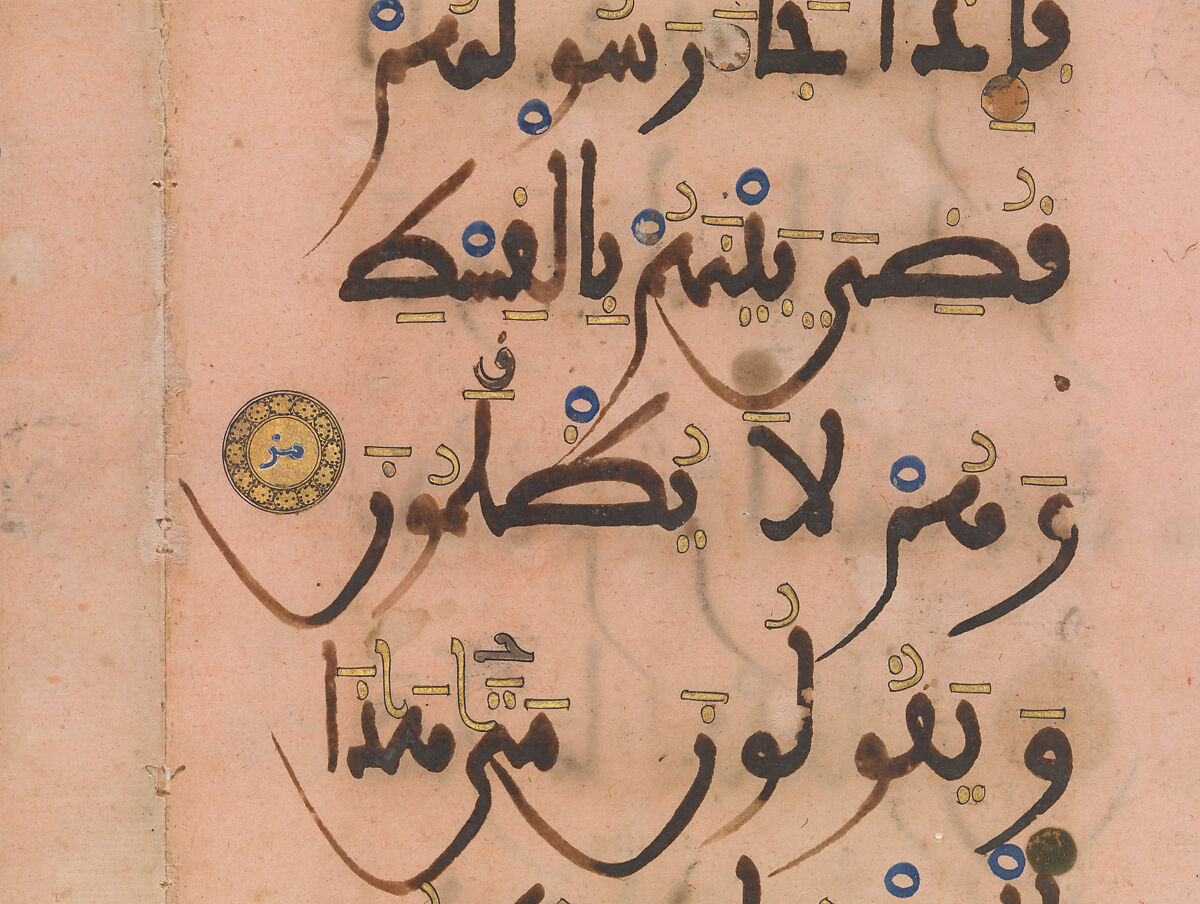 فَإِذَا جَاءَ رَسُولُهُمْ
قُضِيَ بَيْنَهُمْ بِالْقِسْطِ
وَهُمْ لَا يُظْلَمُونَ مز
وَيَقُولُونَ مَتَىٰ هَٰذَا